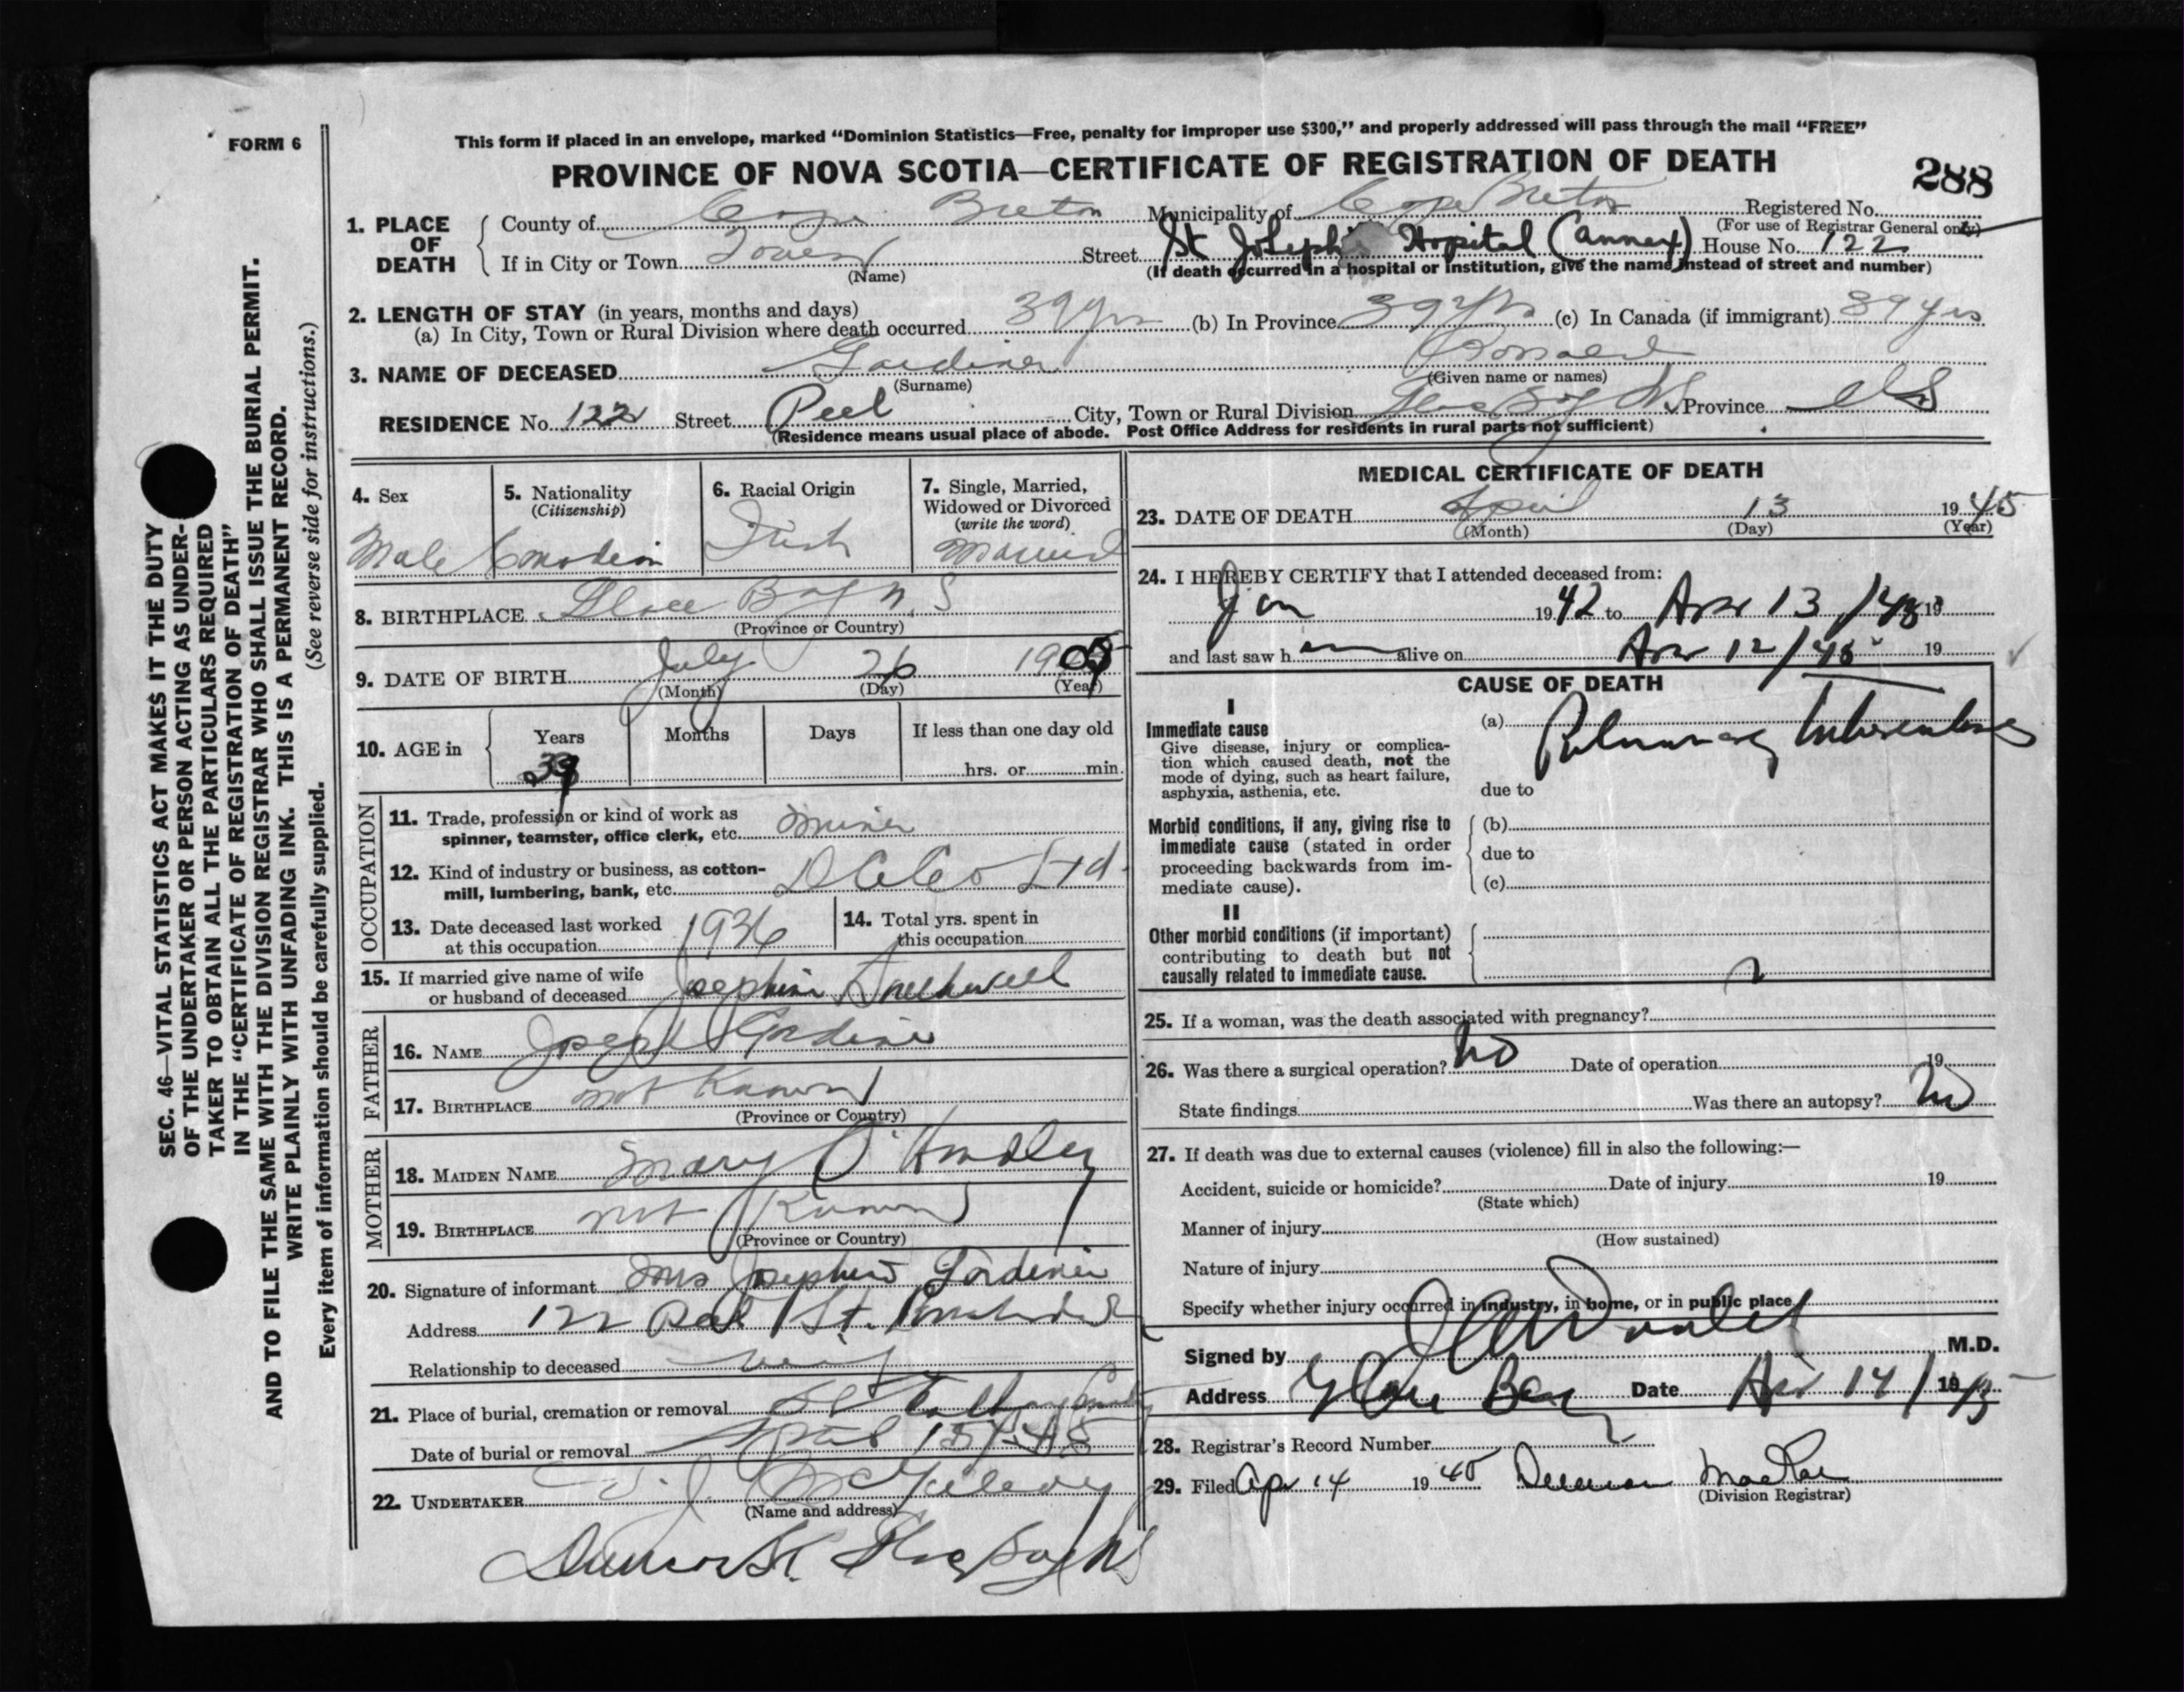 FORM 6
This form if placed in an envelope, marked “Dominion Statistics—Free, penalty for improper use $300,” and properly addressed will pass through the mail “FREE”
PROVINCE OF NOVA SCOTIA—CERTIFICATE OF REGISTRATION OF DEATH
288
1. PLACE OF DEATH
County of Cape Breton Municipality of Cape Breton Registered No.
(For use of Registrar General only)
If in City or Town Town Street St Joseph's Hospital (Annex) House No. 122
(Name) (If death occurred in a hospital or institution, give the name instead of street and number)
2. LENGTH OF STAY (in years, months and days)
(a) In City, Town or Rural Division where death occurred 39 yrs (b) In Province 39 yrs (c) In Canada (if immigrant) 39 yrs
3. NAME OF DECEASED Gardiner Ronald
(Surname) (Given name or names)
RESIDENCE No. 122 Street Peel City, Town or Rural Division Glace Bay N S Province N S
(Residence means usual place of abode. Post Office Address for residents in rural parts not sufficient)
4. Sex
Male
5. Nationality
(Citizenship)
Canadian
6. Racial Origin
Irish
7. Single, Married,
Widowed or Divorced
(write the word)
Married
8. BIRTHPLACE Glace Bay N. S
(Province or Country)
9. DATE OF BIRTH July 26 1905
(Month) (Day) (Year)
10. AGE in
Years Months Days If less than one day old
39 hrs. or min.
OCCUPATION
11. Trade, profession or kind of work as
spinner, teamster, office clerk, etc. Miner
12. Kind of industry or business, as cotton-
mill, lumbering, bank, etc. D C Co Ltd
13. Date deceased last worked
at this occupation 1936
14. Total yrs. spent in
this occupation
15. If married give name of wife
or husband of deceased Josephine
FATHER
16. NAME Joseph Gardiner
17. BIRTHPLACE not Known
(Province or Country)
MOTHER
18. MAIDEN NAME Mary O'Handley
19. BIRTHPLACE not Known
(Province or Country)
20. Signature of informant Mrs Josephine Gardiner
Address 122 Peel St.
Relationship to deceased wife
21. Place of burial, cremation or removal St
Date of burial or removal April 15/45
22. UNDERTAKER J. McGillivray
(Name and address)
St. Glace Bay N S
MEDICAL CERTIFICATE OF DEATH
23. DATE OF DEATH April 13 1945
(Month) (Day) (Year)
24. I HEREBY CERTIFY that I attended deceased from:
Jan 1942 to Apr 13/45 19
and last saw h im alive on Apr 12/45 19
CAUSE OF DEATH
I
Immediate cause
Give disease, injury or complica-
tion which caused death, not the
mode of dying, such as heart failure,
asphyxia, asthenia, etc.
(a) Pulmonary tuberculosis
due to
Morbid conditions, if any, giving rise to
immediate cause (stated in order
proceeding backwards from im-
mediate cause).
(b)
due to
(c)
II
Other morbid conditions (if important)
contributing to death but not
causally related to immediate cause.
25. If a woman, was the death associated with pregnancy?
26. Was there a surgical operation? No Date of operation 19
State findings Was there an autopsy? No
27. If death was due to external causes (violence) fill in also the following:—
Accident, suicide or homicide? Date of injury 19
(State which)
Manner of injury
(How sustained)
Nature of injury
Specify whether injury occurred in industry, in home, or in public place
Signed by M.D.
Address Glace Bay Date Apr 14/1945
28. Registrar's Record Number
29. Filed Apr 14 1945 MacRae
(Division Registrar)
SEC. 46—VITAL STATISTICS ACT MAKES IT THE DUTY
OF THE UNDERTAKER OR PERSON ACTING AS UNDER-
TAKER TO OBTAIN ALL THE PARTICULARS REQUIRED
IN THE “CERTIFICATE OF REGISTRATION OF DEATH”
AND TO FILE THE SAME WITH THE DIVISION REGISTRAR WHO SHALL ISSUE THE BURIAL PERMIT.
WRITE PLAINLY WITH UNFADING INK. THIS IS A PERMANENT RECORD.
Every item of information should be carefully supplied. (See reverse side for instructions.)